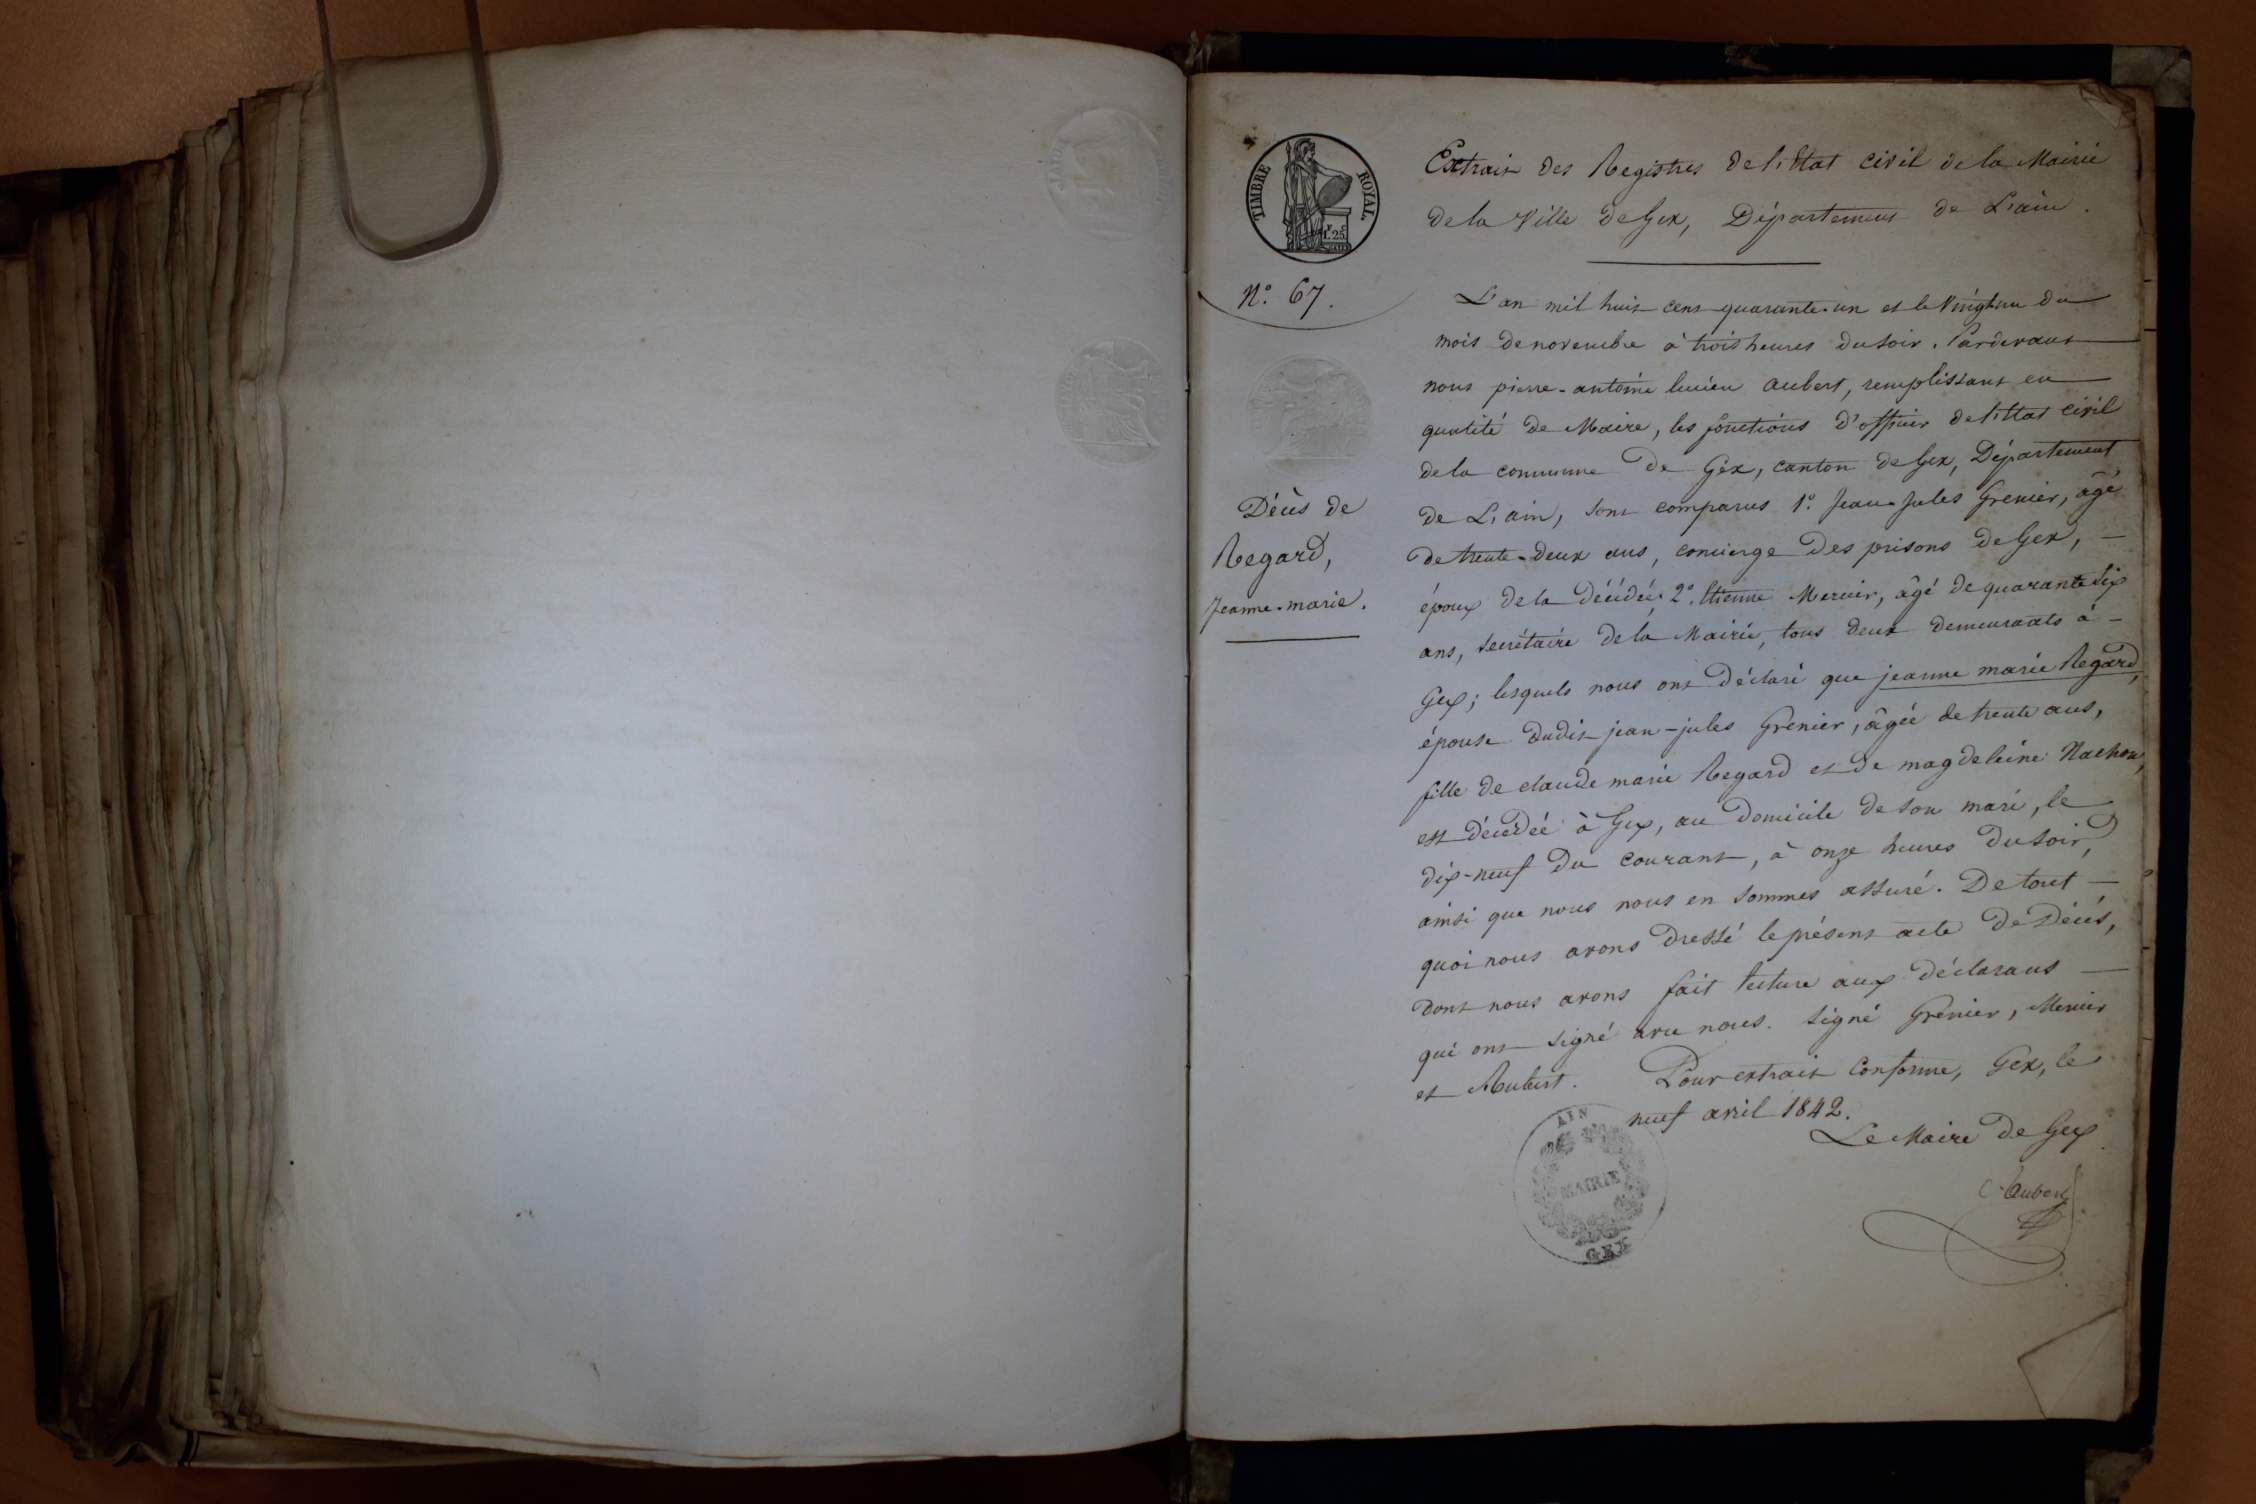 TIMBRE ROYAL
1 F 25 C
N.° 67.
Décès de
Regard,
Jeanne-marie.
Extrait des Registres de l'Etat civil de la Mairie
de la Ville de Gex, Département de L'ain.
L'an mil huit cent quarante-un et le Vingt un du
mois de novembre à trois heures du soir. Pardevant
nous pierre-antoine lucien aubert, remplissant en
qualité de Maire, les fonctions d'officier de l'Etat civil
de la commune de Gex, canton de Gex, Département
de L'ain, sont comparus 1.° Jean-Jules Grenier, âgé
de trente-deux ans, concierge des prisons de Gex,
époux de la décédée, 2.° Etienne Mercier, âgé de quarante six
ans, secrétaire de la Mairie, tous deux demeurants à
Gex; lesquels nous ont déclaré que jeanne marie Regard,
épouse dudit jean-jules Grenier, âgée de trente ans,
fille de claude marie Regard et de magdeleine Nachon,
est décédée à Gex, au domicile de son mari, le
dix-neuf du courant, à onze heures du soir,
ainsi que nous nous en sommes assuré. De tout
quoi nous avons dressé le présent acte de Décès,
dont nous avons fait lecture aux déclarans
qui ont signé avec nous. Signé Grenier, Mercier
et Aubert. Pour extrait conforme, Gex, le
neuf avril 1842.
Le Maire de Gex
Aubert
AIN
MAIRIE
GEX